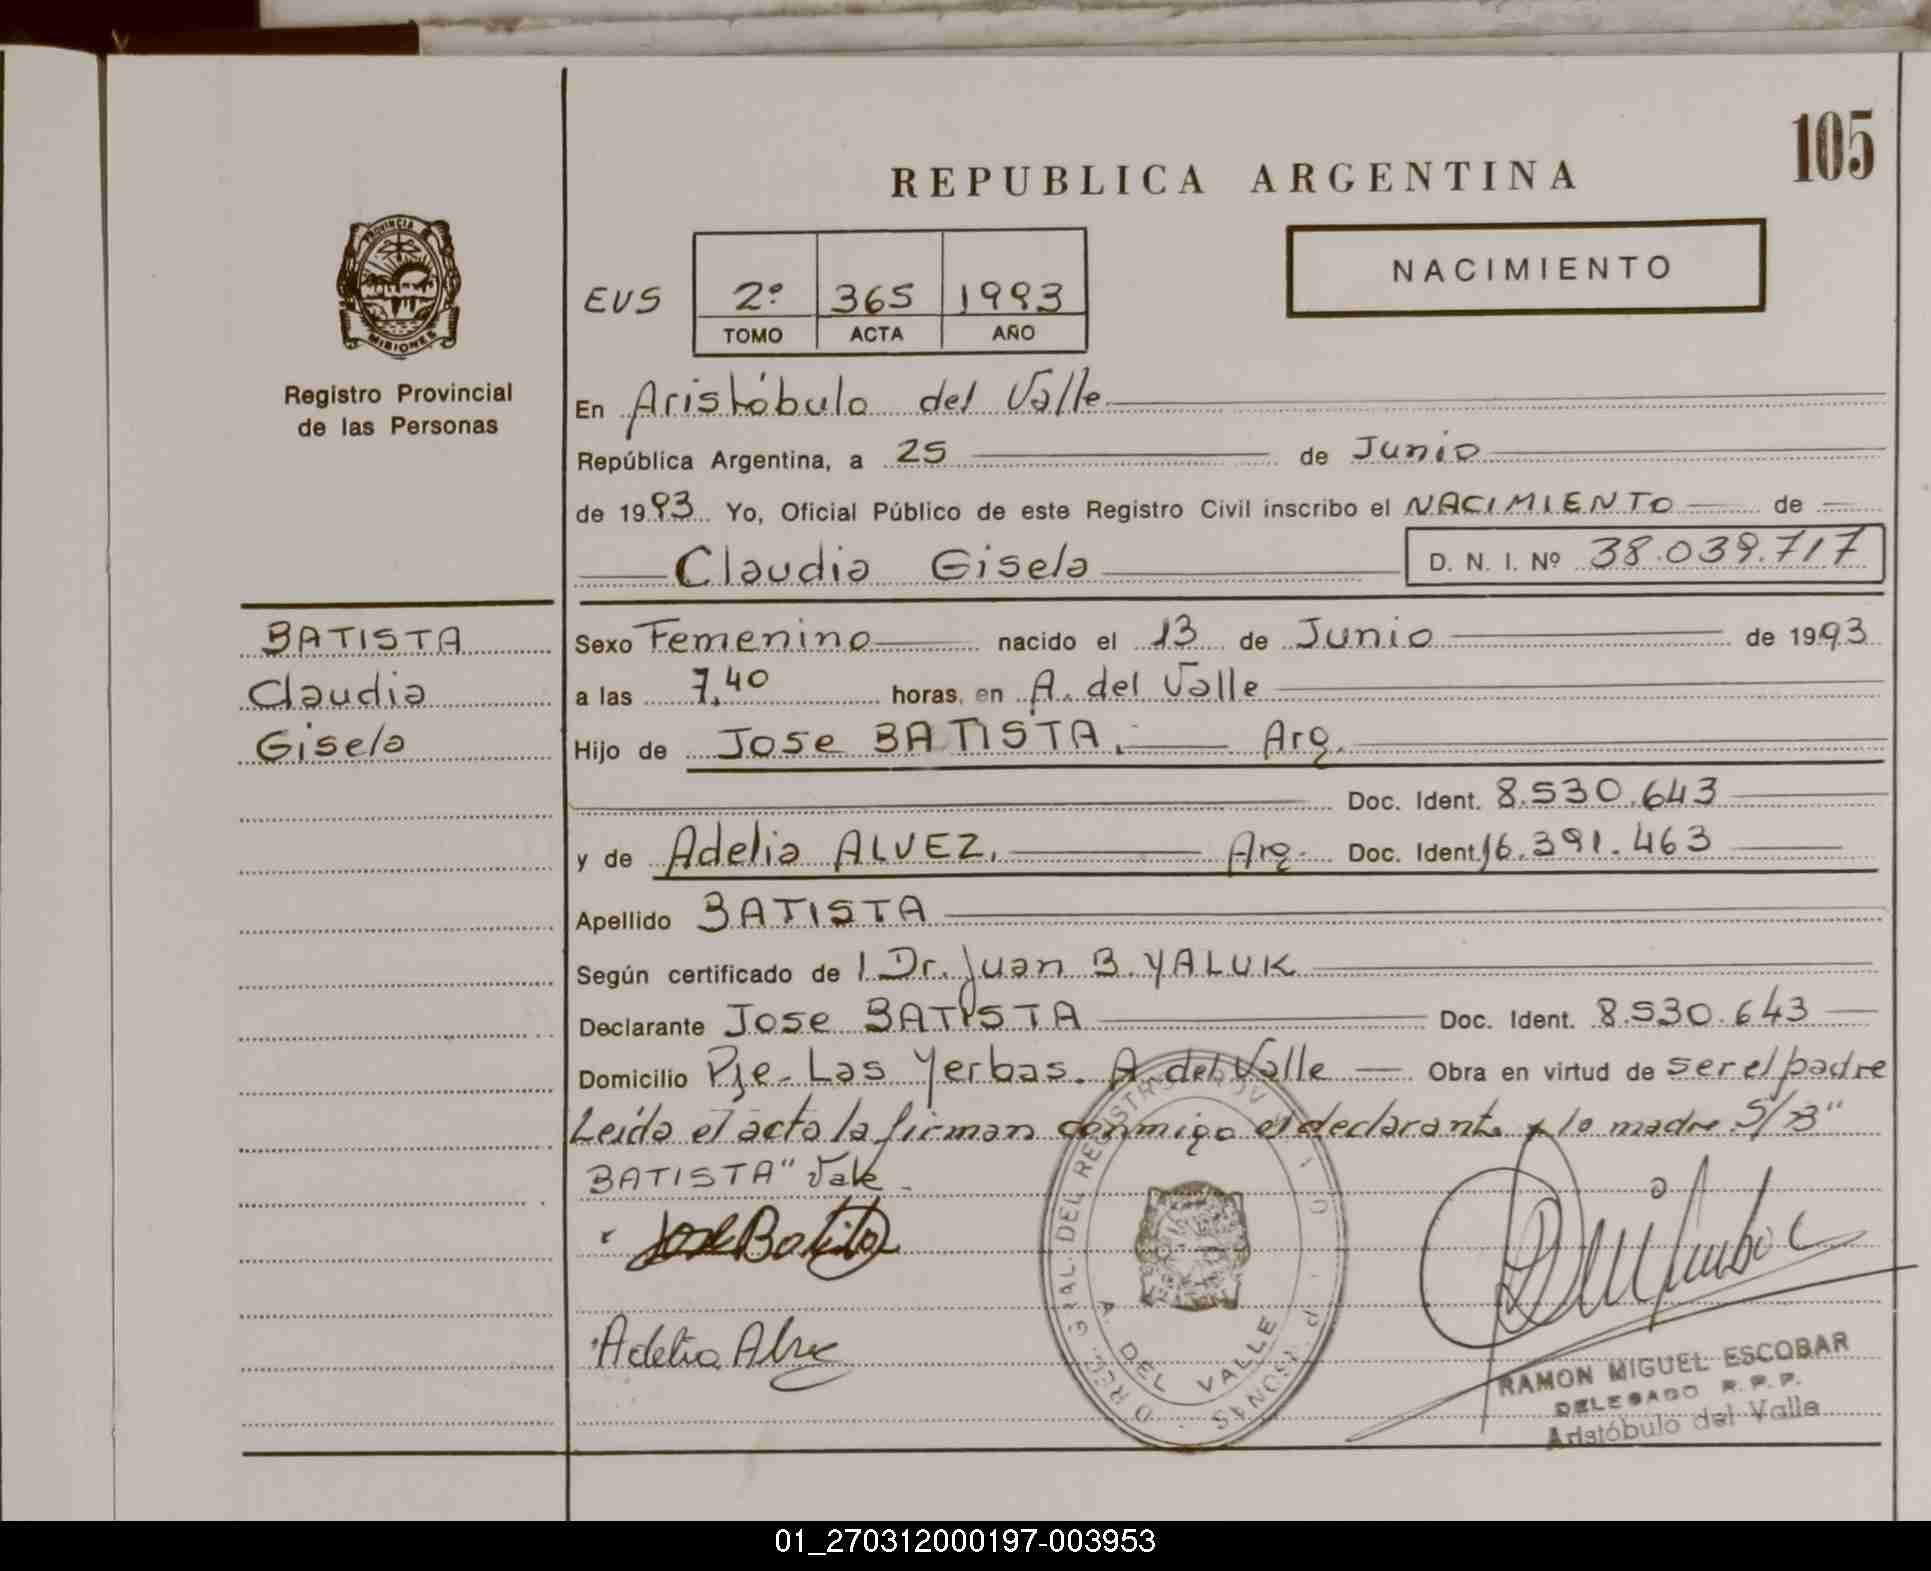 105
REPUBLICA ARGENTINA
NACIMIENTO
PROVINCIA
MISIONES
Registro Provincial
de las Personas
EVS 2º 365 1993
TOMO ACTA AÑO
En Aristóbulo del Valle
República Argentina, a 25 de Junio
de 1993 Yo, Oficial Público de este Registro Civil inscribo el NACIMIENTO de
Claudia Gisela D. N. I. Nº 38.039.717
BATISTA
Claudia
Gisela
Sexo Femenino nacido el 13 de Junio de 1993
a las 7,40 horas, en A. del Valle
Hijo de Jose BATISTA. Arg.
Doc. Ident. 8.530.643
y de Adelia ALVEZ. Arg. Doc. Ident. 16.391.463
Apellido BATISTA
Según certificado de l Dr. Juan B. YALUK
Declarante Jose BATISTA Doc. Ident. 8.530.643
Domicilio Pje. Las Yerbas. A del Valle Obra en virtud de ser el padre
Leída el acta la firman conmigo el declarante y la madre S/B"
BATISTA" Vale
Jose Batista
Adelia Alvez
A. DEL VALLE
RAMON MIGUEL ESCOBAR
DELEGADO R. P. P.
Aristóbulo del Valle
01_270312000197-003953